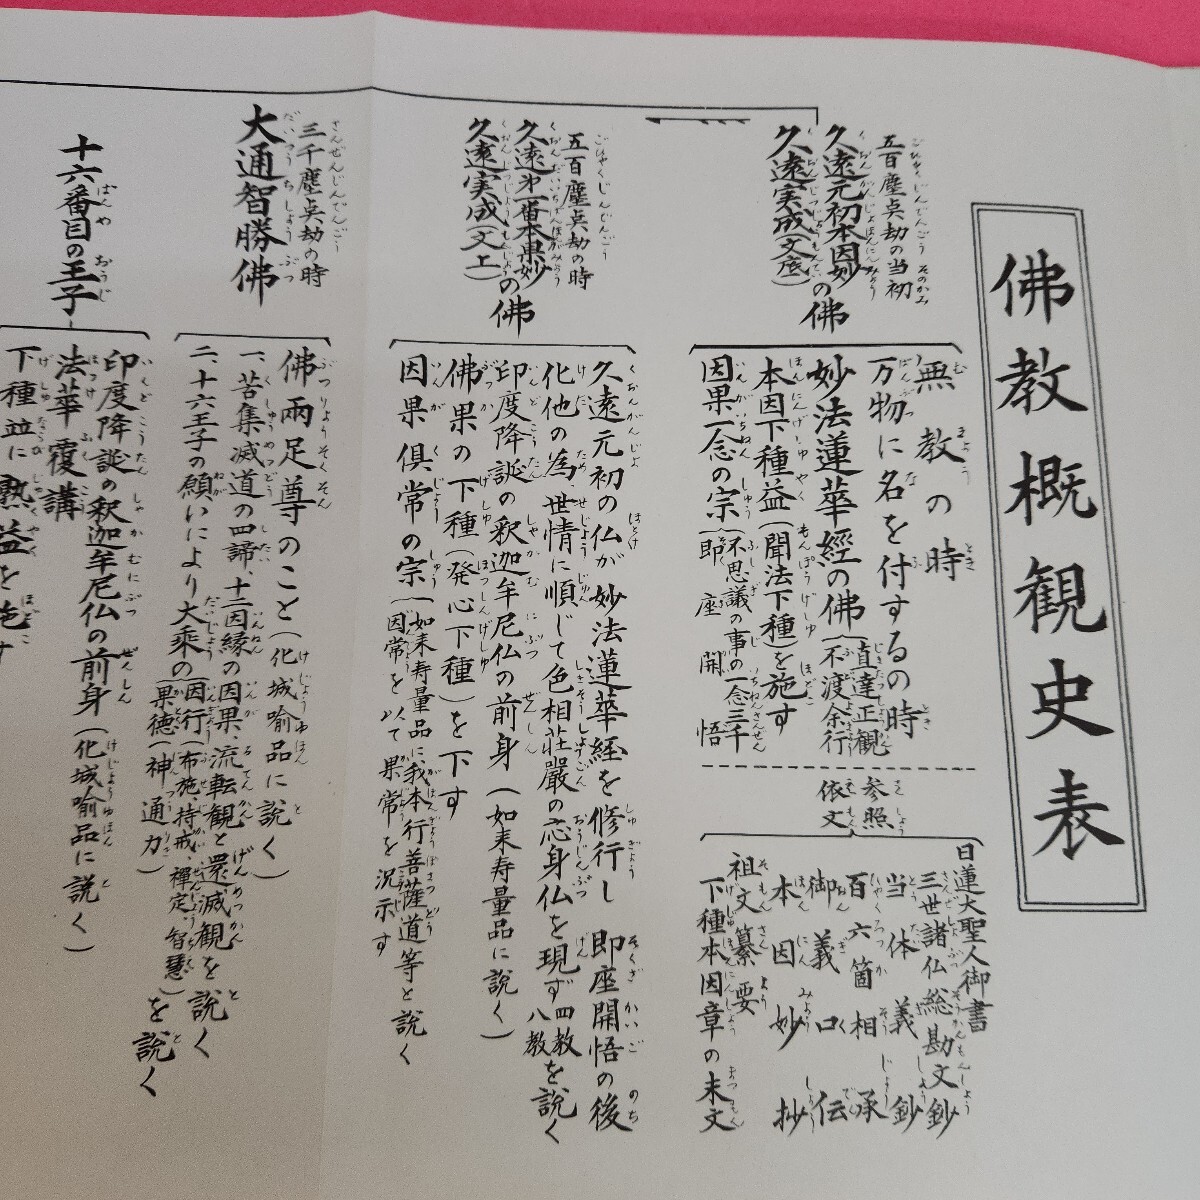 佛教概観史表
五百塵点劫の当初
久遠元初本因妙
久遠実成(文底)の佛
無教の時
万物に名を付するの時
妙法蓮華經の佛(直達正観
不渡余行
本因下種益(聞法下種)を施す
因果一念の宗(不思議の事の一念三千
即座開悟
参照
依文
日蓮大聖人御書
三世諸仏総勘文鈔
当体義鈔
百六箇相承
御義口伝
本因妙抄
祖文纂要
下種本因章の末文
五百塵点劫の時
久遠㐧一番本果妙
久遠実成(文上)の佛
久遠元初の仏が妙法蓮華経を修行し 即座開悟の後
化他の為世情に順じて色相荘厳の応身仏を現ず四教八教を説く
印度降誕の釈迦牟尼仏の前身(如来寿量品に説く)
佛果の下種(発心下種)を下す
因果俱常の宗(如来寿量品に我本行菩薩道等と説く
因常を以て果常を況示す
三千塵点劫の時
大通智勝佛
佛兩足尊のこと(化城喩品に説く)
一、苦集滅道の四諦、十二因縁の因果、流転観と還滅観を説く
二、十六王子の願いにより大乘の(因行(布施持戒、禪定、智慧)を説く
果徳(神通力)
十六番目の王子
印度降誕の釈迦牟尼仏の前身(化城喩品に説く)
法華覆講
下種並に熟益を施す